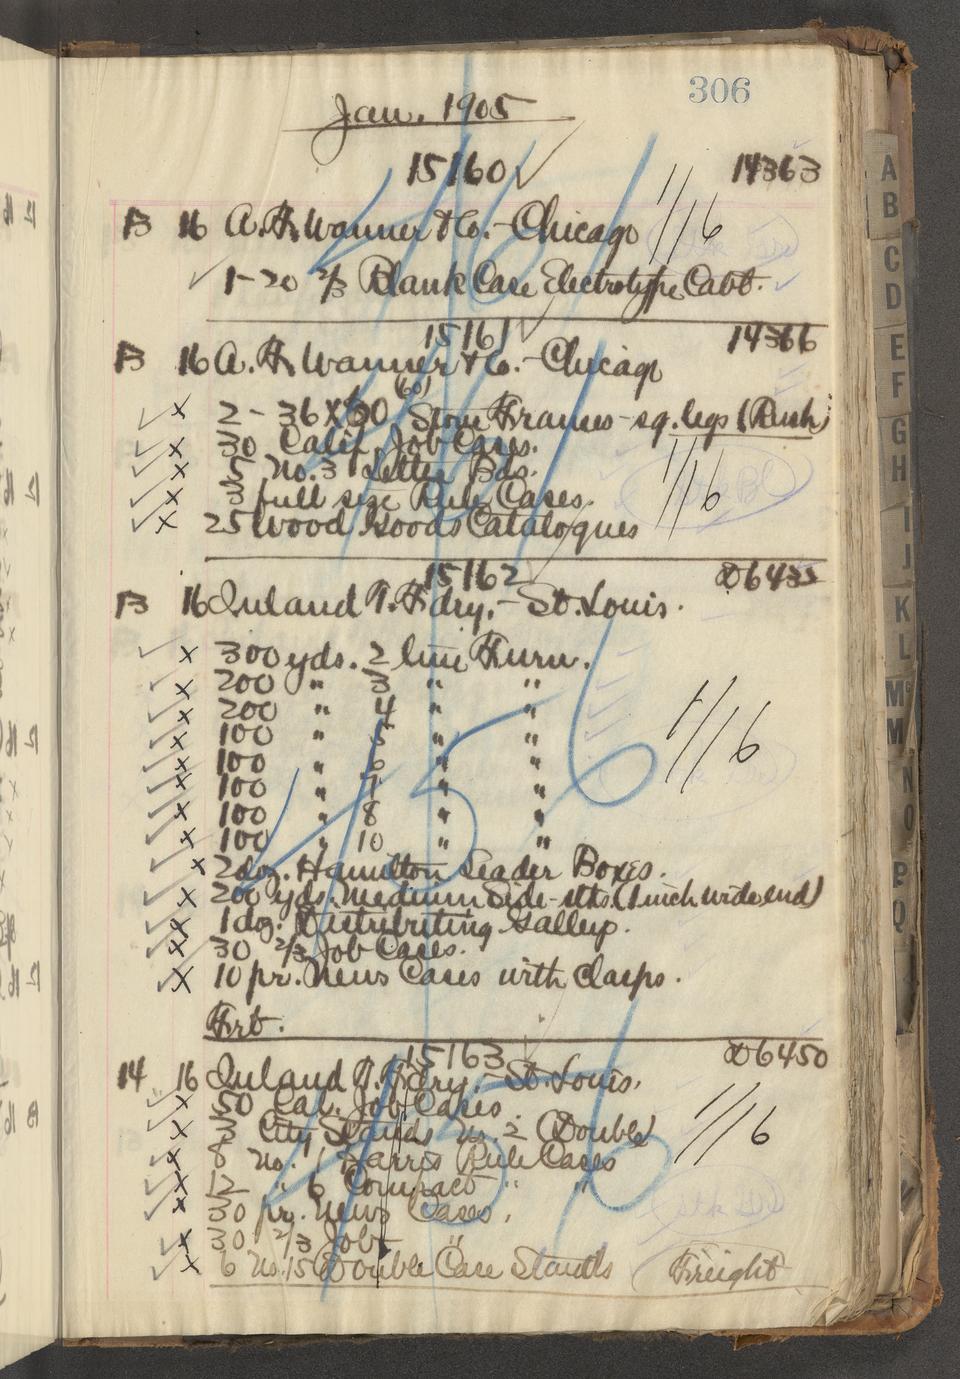 306
Jan. 1905
15160 14363
13 16 A. F. Wanner & Co. - Chicago 1/16
1-20 2/3 Blank Case Electrotype Cabt.
15161 14366
13 16 A. F. Wanner & Co. - Chicago
(60)
x 2 - 36 x 60 Stone Frames - sq. legs (Rush)
x 30 Calif. Job Cases.
x No. 3 Letter Bds. 1/16
x full size Rule Cases.
x 25 Wood Goods Catalogues
15162 D6432
13 16 Inland T. Fdry. - St. Louis.
x 300 yds. 2 line Furn.
x 200 " 3 " "
x 200 " 4 " " 1/16
x 100 " 5 " "
x 100 " 6 " "
x 100 " 7 " "
x 100 " 8 " "
x 100 " 10 " "
x 2 doz. Hamilton Leader Boxes.
x 200 yds. Medium Side-stks. (1 inch wide end)
x 1 doz. Distributing Galleys.
x 30 2/3 Job Cases.
x 10 pr. News Cases with clasps.
Frt.
15163 D6450
14 16 Inland T. Fdry. - St. Louis.
x 50 Cal. Job Cases.
x City Stands No. 2 (Double) 1/16
x 8 No. 1 Harris Rule Cases
x 12 " 6 Compact " "
x 30 pr. News Cases.
x 30 2/3 Job "
x 6 No. 15 Double Case Stands Freight
A
B
C
D
E
F
G
H
I
J
K
L
Mc
M
N
O
P
Q